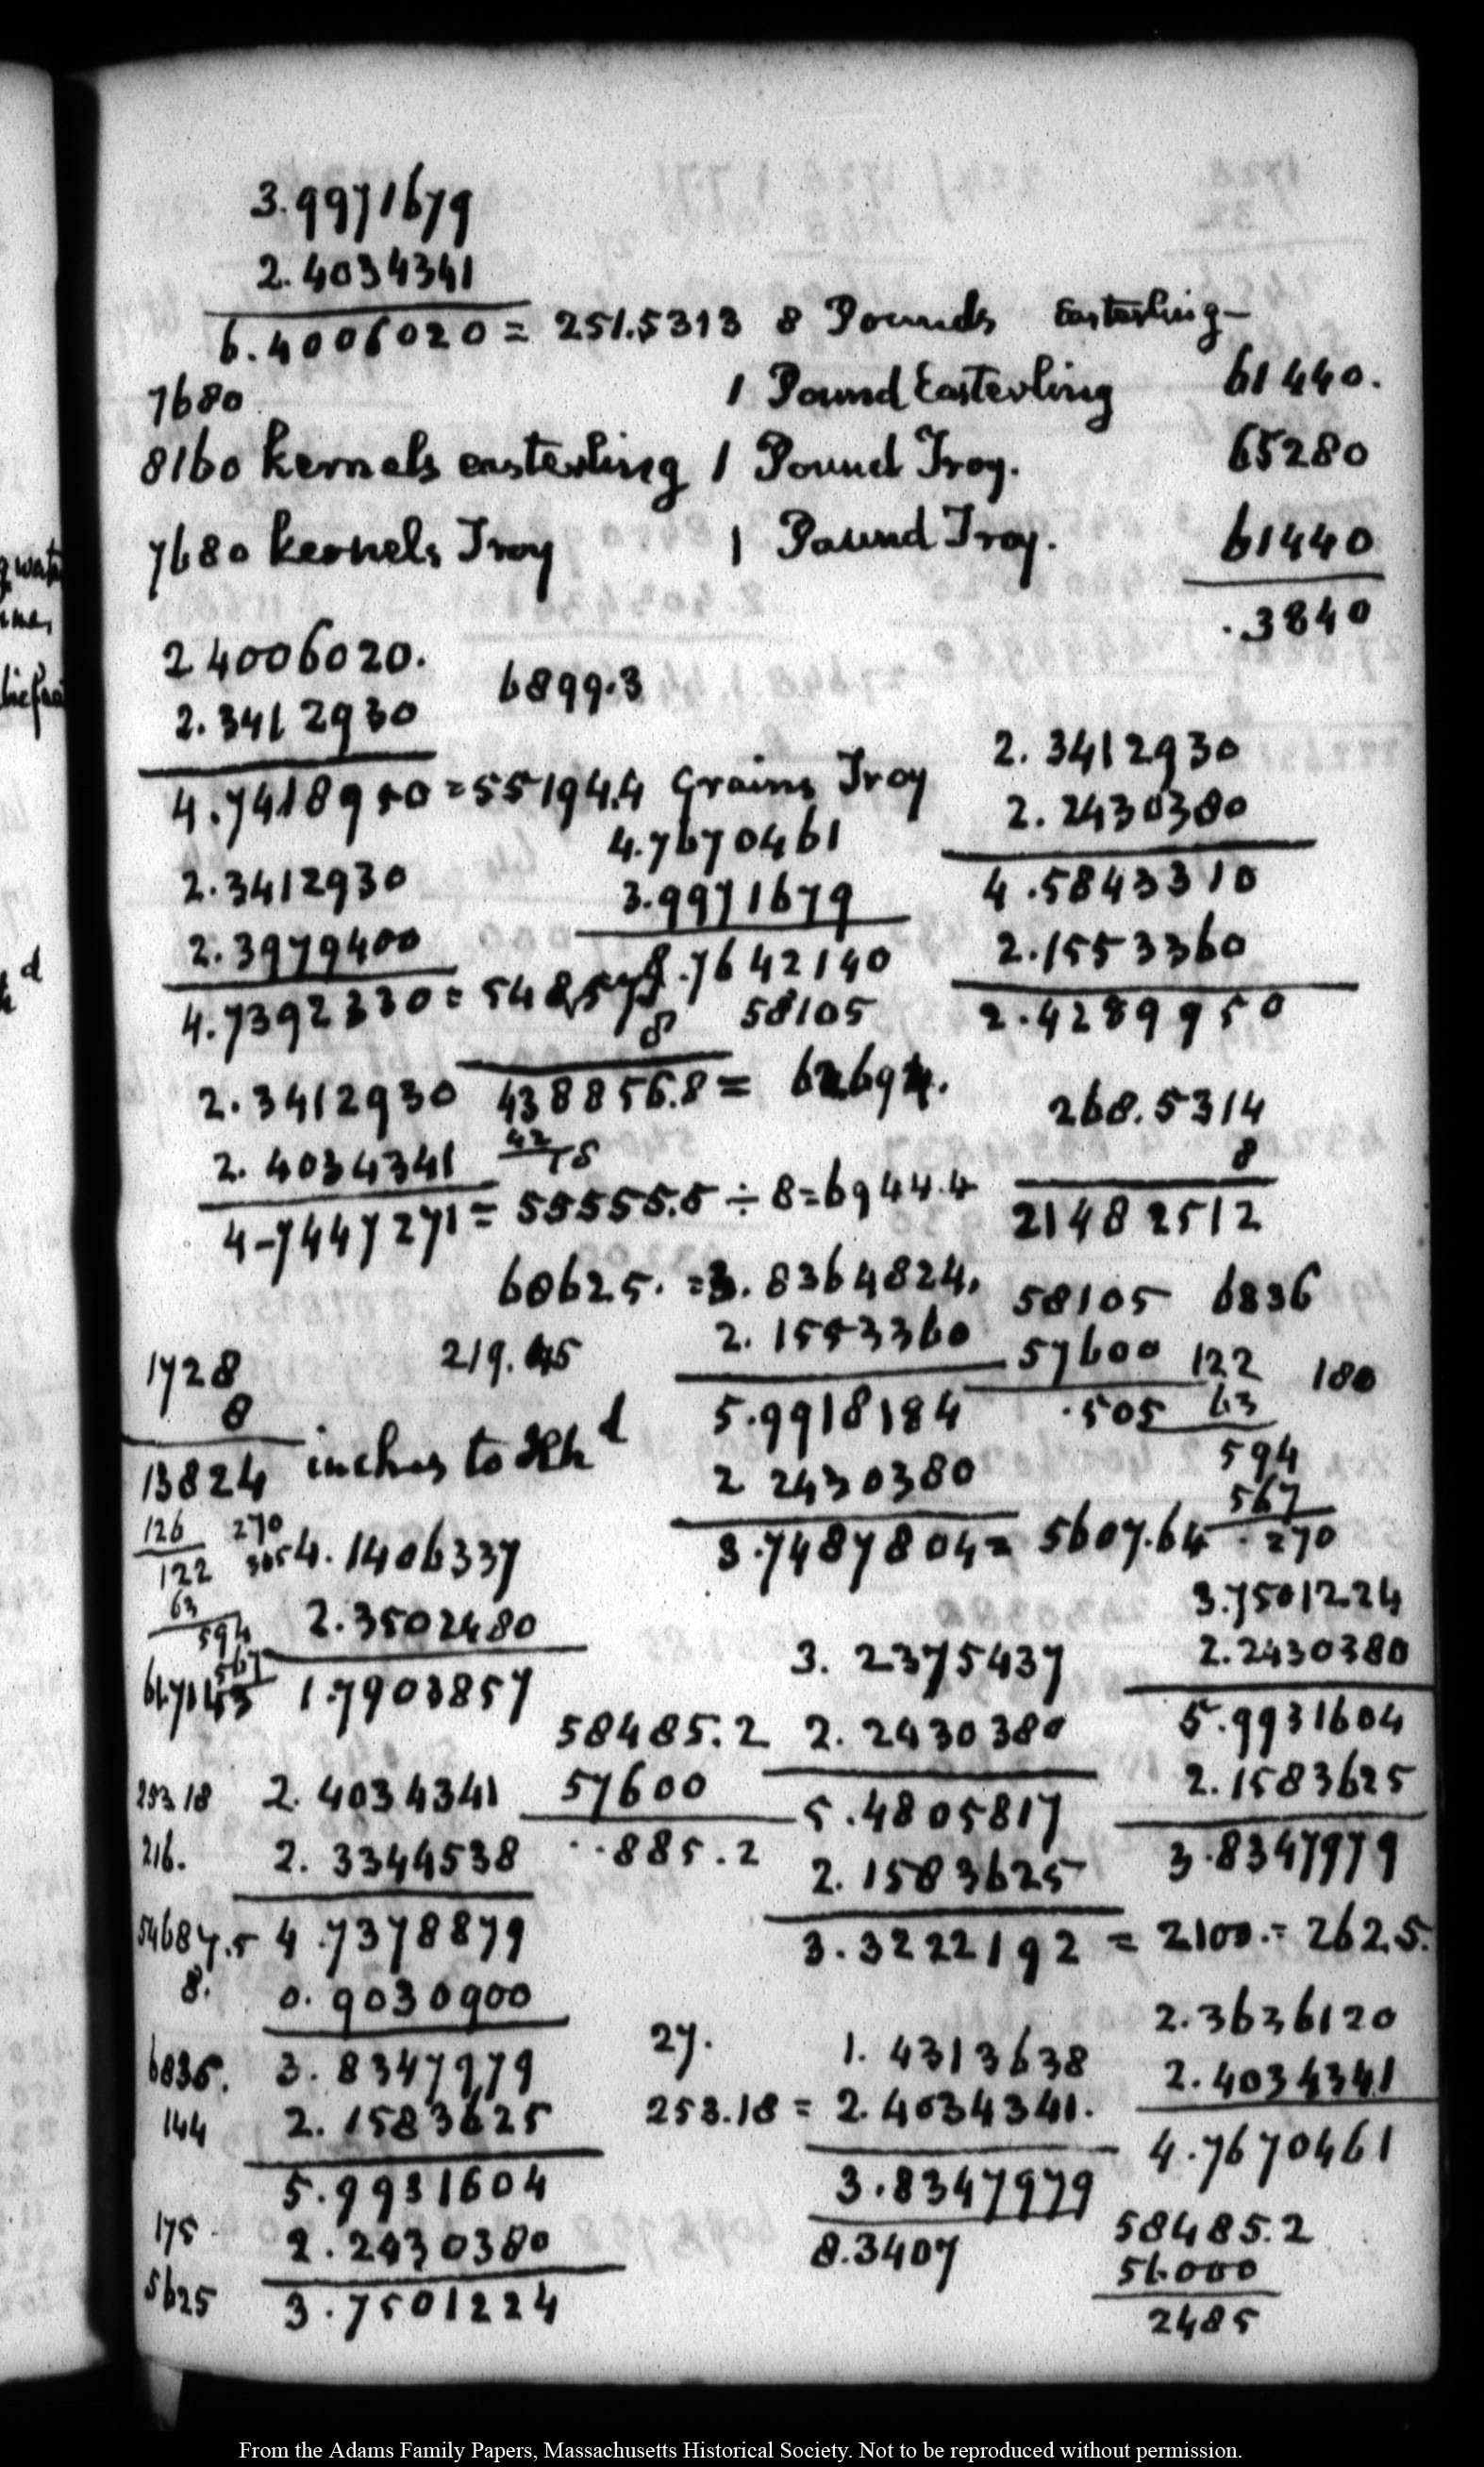 3.9971679
2.4034341
6.4006020 = 251.5313 8 Pounds Easterling
7680 1 Pound Easterling 61440.
8160 kernels easterling 1 Pound Troy. 65280
7680 kernels Troy 1 Pound Troy. 61440
.3840
2 4006020. 6899.3
2.3412930
4.7418950 = 55194.4 Grains Troy
2.3412930
2.2430380
4.5843310
2.1553360
2.4289950
4.7670461
3.9971679
8.7642140
58105
2.3412930
2.3979400
4.7392330 = 54857.1
8
438856.8 =
2.3412930
2.4034341
4.7447271 = 55555.5 ÷ 8 = 6944.4
268.5314
8
21482512
60625. = 3.8364824.
2.1553360
5.9918184
2 2430380
3.7487804 = 5607.64
58105 6836
57600 122 180
.505 63
594
567
.270
1728 219.45
8
13824 inches to Hhd
126 270
122
63
594
567
4.1406337
2.3502480
1.7903857
3.7501224
2.2430380
5.9931604
2.1583625
3.8347979
3.2375437
2.2430380
5.4805817
2.1583625
3.3222192 = 2100. = 262.5.
58485.2
57600
..885.2
253.18 2.4034341
216. 2.3344538
54687.5 4.7378879
8. 0.9030900
6836. 3.8347979
144 2.1583625
5.9931604
175 2.2430380
5625 3.7501224
27. 1.4313638
253.18 = 2.4034341.
3.8347979
8.3407
2.3636120
2.4034341
4.7670461
58485.2
56000
2485
From the Adams Family Papers, Massachusetts Historical Society. Not to be reproduced without permission.